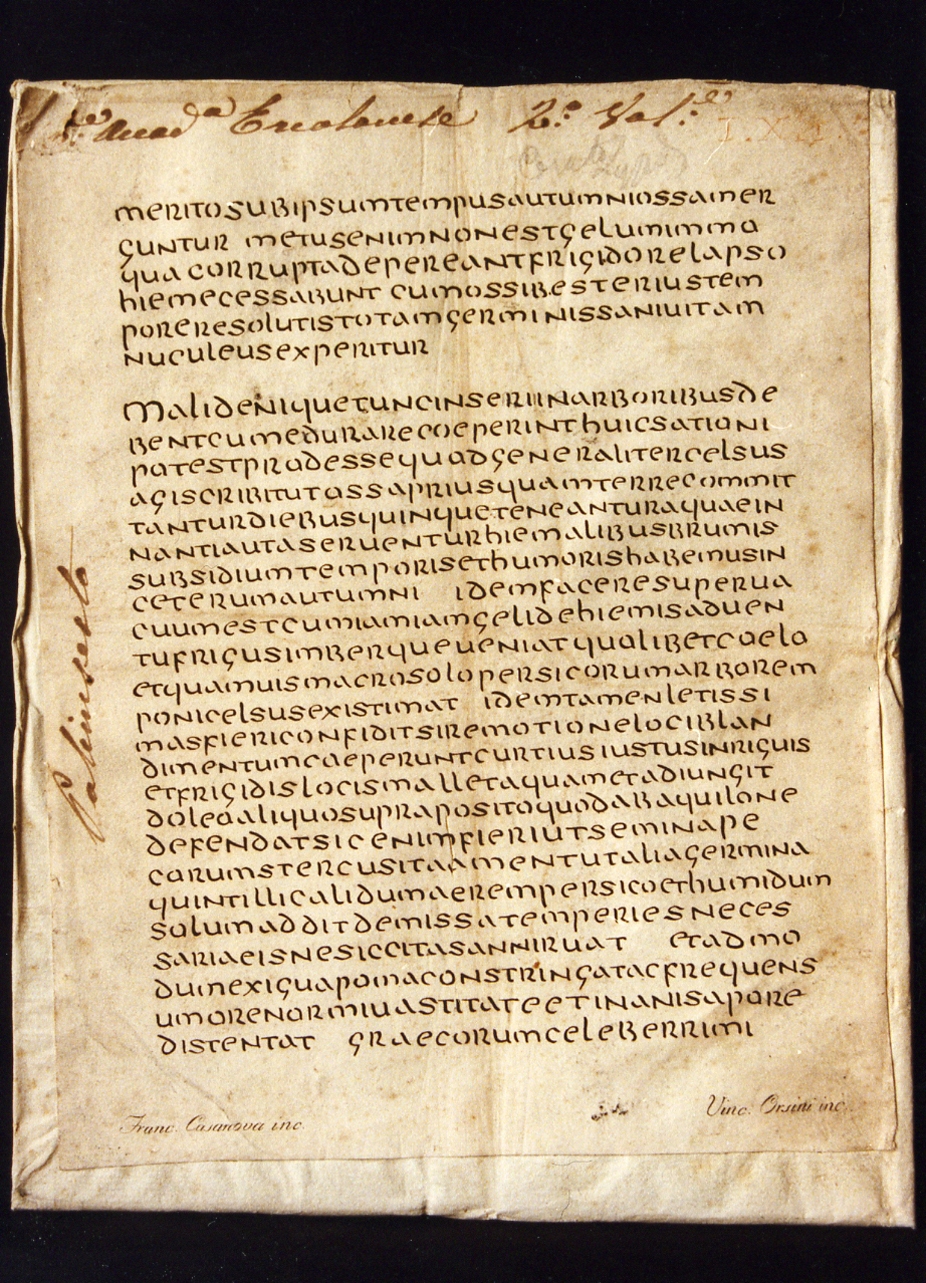 Ercolanese 2.º Vol.
meritosubipsumtempusautumniossamer
guntur metusenimnonestgeluminmo
quacorruptadepereantfrigidorelapso
hiemecessabunt cumossibesteriustem
poreresolutistotamgerminissaniuitam
nuculeusexperitur
Malideniquetuncinseriinarboribusde
bentcumedurarecoeperinthuicsationi
potestprodessequodgeneralitercelsus
agiscribitutossapriusquamterrecommit
tanturdiebusquinqueteneanturaquaein
nantiautaseruenturhiemalibusbrumis
subsidiumtemporisethumorishabemusin
ceterumautumni idemfaceresuperua
cuumestcumiamiamgelidehiemisaduen
tufrigusimberqueueniatqualibetcoelo
etquamuismacrosolopersicorumarborem
ponicelsusexistimat idemtamenletissi
masfiericonfiditsiremotionelociblan
dimentumcoeperuntcurtiusiustusinriguis
etfrigidislocismalletaquametadiungit
doleoaliquosuprapositoquodabaquilone
defendatsicenimfieriutseminape
corumstercusitaamentutaliagermina
quintillicalidumaerempersicoethumidum
solumadditdemissatemperiesneces
sariaeisnesiccitasanniruat etadmo
dumexiguapomaconstringatacfrequens
umorenormiuastitateetinanisapore
distentat graecorumceleberrimi
Palinsesto
Franc. Casanova inc.
Vinc. Orsini inc.